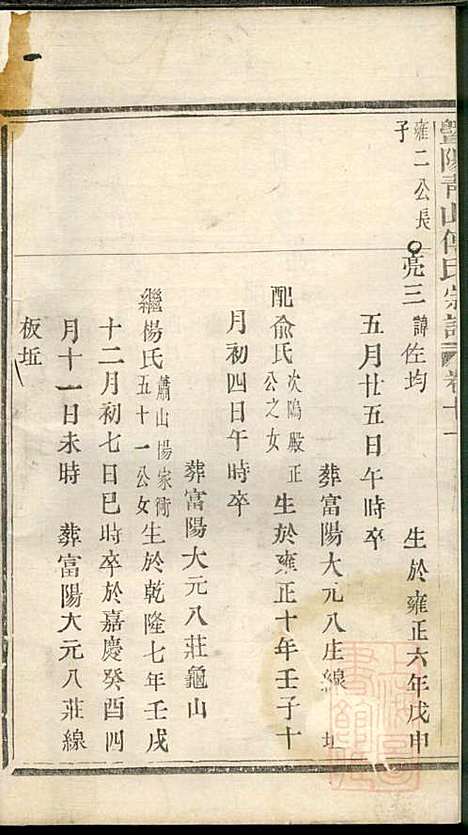 暨陽青山傅氏宗譜 卷十一
雍二公長
子
亮三 諱佐均 生於雍正六年戊申
五月廿五日午時卒
葬富陽大元八庄線 坵
配俞氏 次塢嚴正
公之女 生於雍正十年壬子十
月初四日午時卒
葬富陽大元八莊龜山
繼楊氏 蕭山楊家衖
五十一公女 生於乾隆七年壬戌
十二月初七日巳時卒於嘉慶癸酉四
月十一日未時 葬富陽大元八莊線
板坵